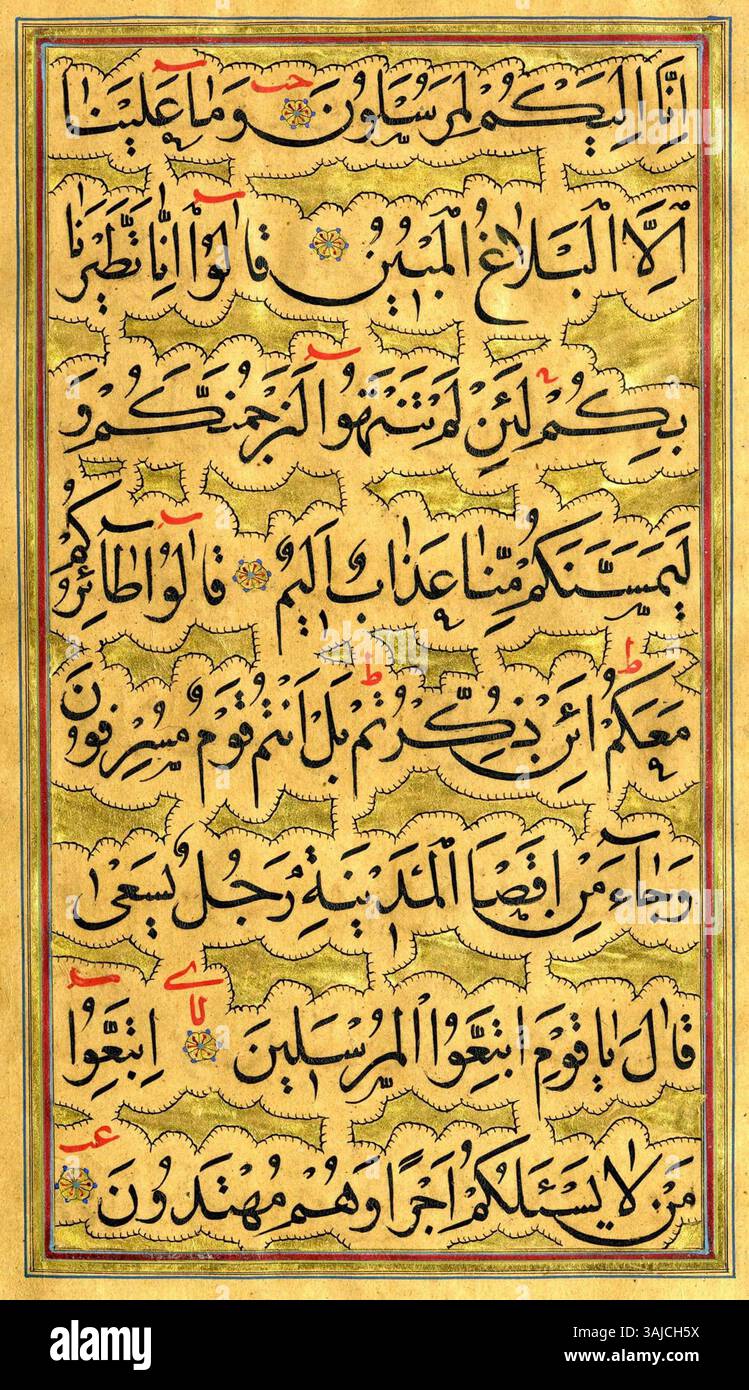 اِنَّا اِلَيْكُمْ لَمُرْسَلُونَ وَمَا عَلَيْنَا
اِلَّا الْبَلَاغُ الْمُبِينُ قَالُوا اِنَّا تَطَيَّرْنَا
بِكُمْ لَئِنْ لَمْ تَنْتَهُوا لَنَرْجُمَنَّكُمْ وَ
لَيَمَسَّنَّكُمْ مِنَّا عَذَابٌ اَلِيمٌ قَالُوا طَآئِرُكُمْ
مَعَكُمْ اَئِنْ ذُكِّرْتُمْ بَلْ اَنْتُمْ قَوْمٌ مُسْرِفُونَ
وَجَآءَ مِنْ اَقْصَا الْمَدِينَةِ رَجُلٌ يَسْعٰى
قَالَ يَا قَوْمِ اتَّبِعُوا الْمُرْسَلِينَ اِتَّبِعُوا
مَنْ لَا يَسْئَلُكُمْ اَجْرًا وَهُمْ مُهْتَدُونَ
alamy
Image ID: 3AJCH5X
www.alamy.com